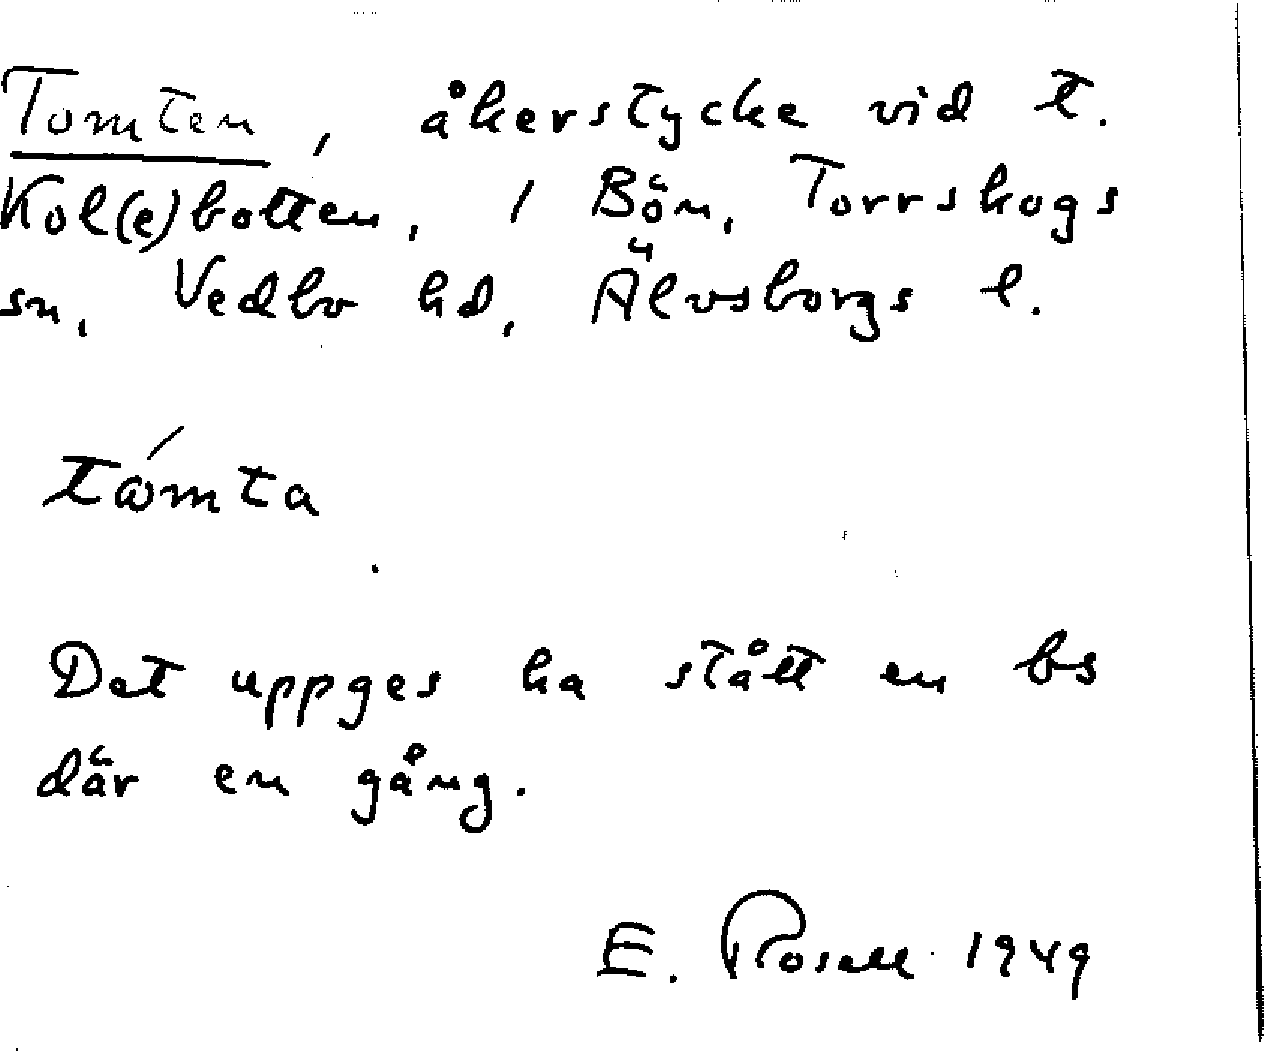 Tomten, åkerstycke vid t.
Kol(e)botten, 1 Bön, Torrskogs
sn, Vedbo hd, Älvsborgs l.
tómta
Det uppges ha stått en bs
där en gång.
E. Rosell 1949